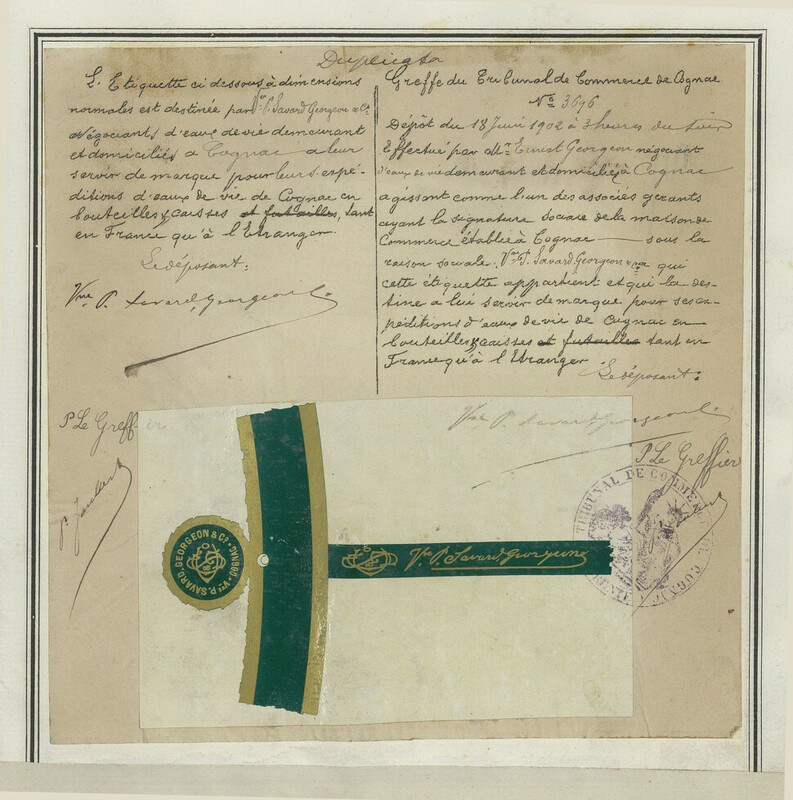 Duplicata
L'Etiquette ci dessous à dimensions
normales est destinée par Vve P. Savard Georgeon & Cie
Négociants d'eaux de vie demeurant
et domiciliés à Cognac à leur
servir de marque pour leurs expé-
ditions d'eaux de vie de Cognac en
bouteilles & caisses et futailles, tant
en France qu'à l'Etranger.
Le déposant:
Vve P. Savard, Georgeon & Co
P Le Greffier
Greffe du Tribunal de Commerce de Cognac
No 3696
Dépôt du 18 Juin 1902 à 3 heures du soir
Effectué par Mr Ernest Georgeon négociant
d'eaux de vie demeurant et domicilié à Cognac
agissant comme l'un des associés gérants
ayant la signature sociale de la maison de
Commerce établie à Cognac — sous la
raison sociale: Vve P. Savard Georgeon & Co à qui
cette étiquette appartient et qui la des-
tine à lui servir de marque pour ses ex-
péditions d'eaux de vie de Cognac en
bouteilles & caisses et futailles tant en
France qu'à l'Etranger
Le déposant:
Vve P. Savard Georgeon & Co
P Le Greffier
TRIBUNAL DE COMMERCE DE COGNAC
VVE P. SAVARD, GEORGEON & Co • COGNAC •
Ve P. Savard Georgeon